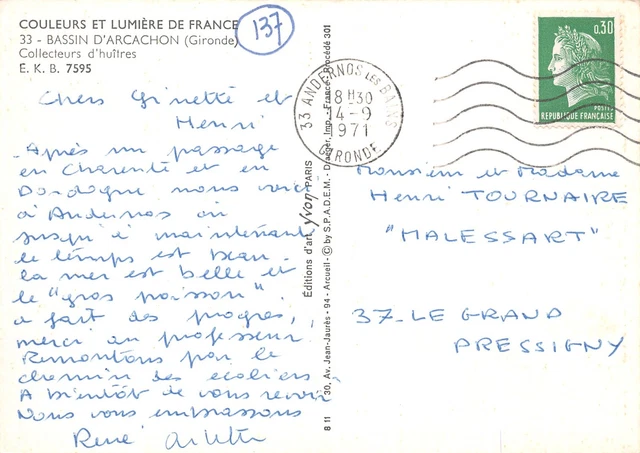 COULEURS ET LUMIÈRE DE FRANCE
33 - BASSIN D'ARCACHON (Gironde)
Collecteurs d'huîtres
E. K. B. 7595
137
Chers Ginette et
Henri
Après un passage
en Charente et en
Dordogne nous voici
à Andernos où
jusqu'à maintenant
le temps est beau.
la mer est belle et
le "gros poisson"
a fait des progrès,
merci au professeur.
Remontons par le
chemin des écoliers
A bientôt de vous revoir
Nous vous embrassons
René Arlette
Éditions d'art Yvon, PARIS
B 11 30, Av. Jean-Jaurès - 94 - Arcueil - © by S.P.A.D.E.M. - Draeger, Imp. - France - Procédé 301
33 ANDERNOS LES BAINS
18H30
14-9
1971
GIRONDE
0,30
POSTES
REPUBLIQUE FRANÇAISE
Monsieur et Madame
Henri TOURNAIRE
"MALESSART"
37-LE GRAND
PRESSIGNY